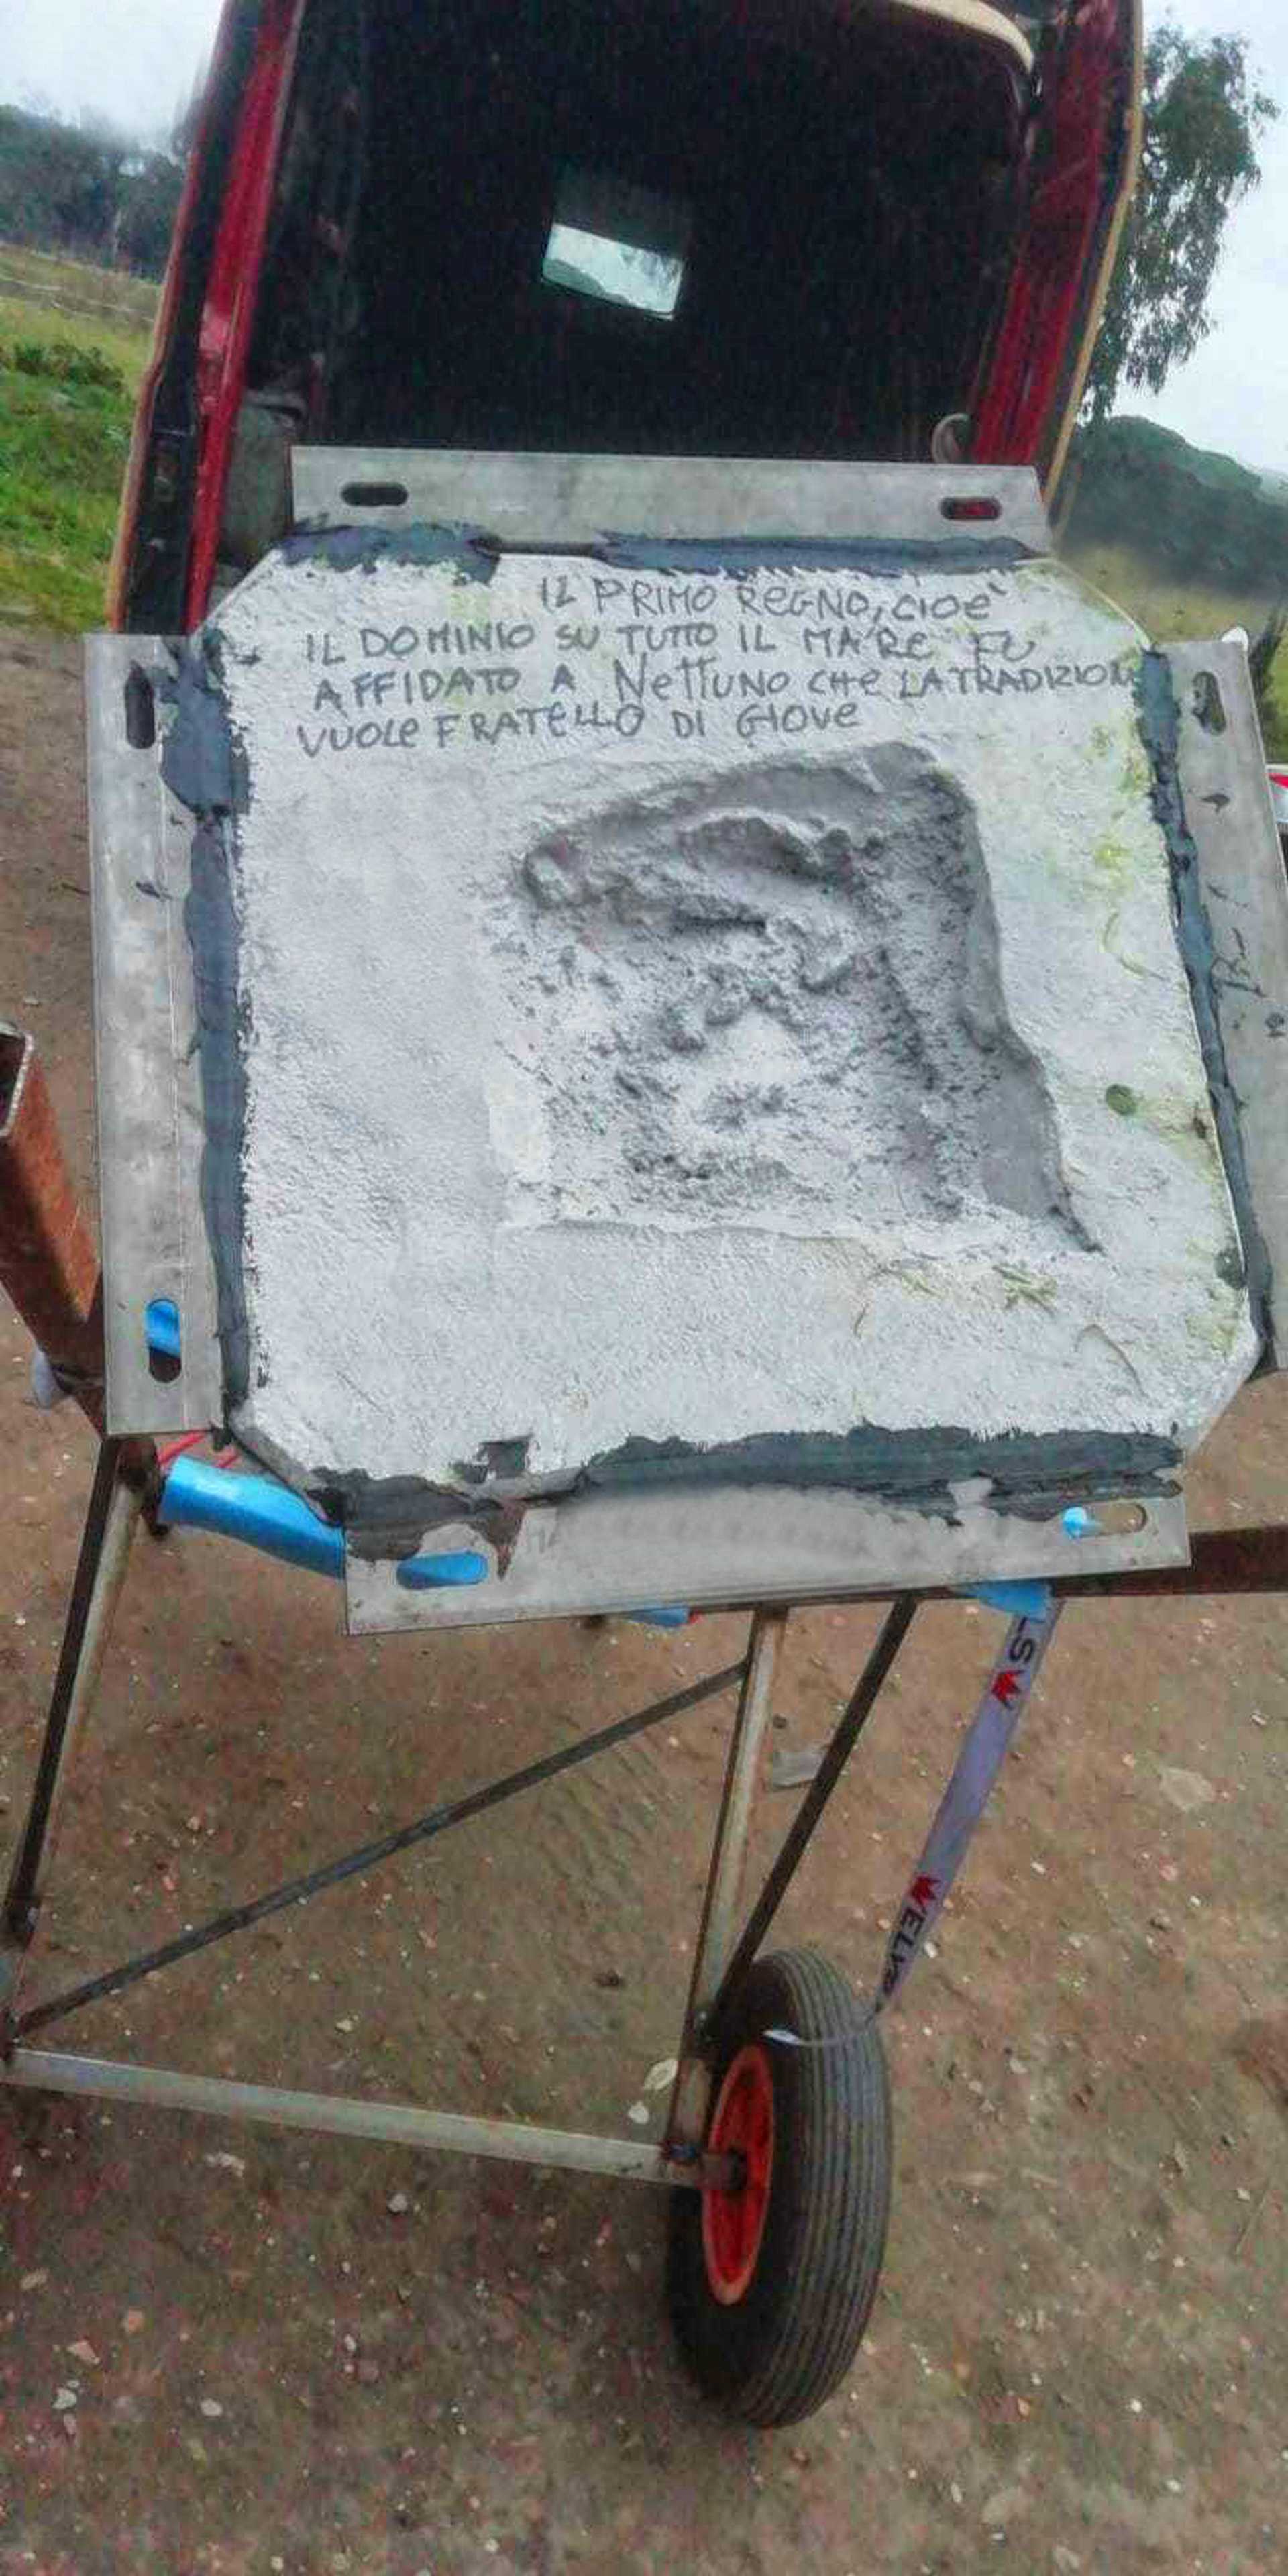 IL PRIMO REGNO, CIOE'
IL DOMINIO SU TUTTO IL MARE FU
AFFIDATO A NETTUNO CHE LA TRADIZION
VUOLE FRATELLO DI GIOVE
LSW
WELVS